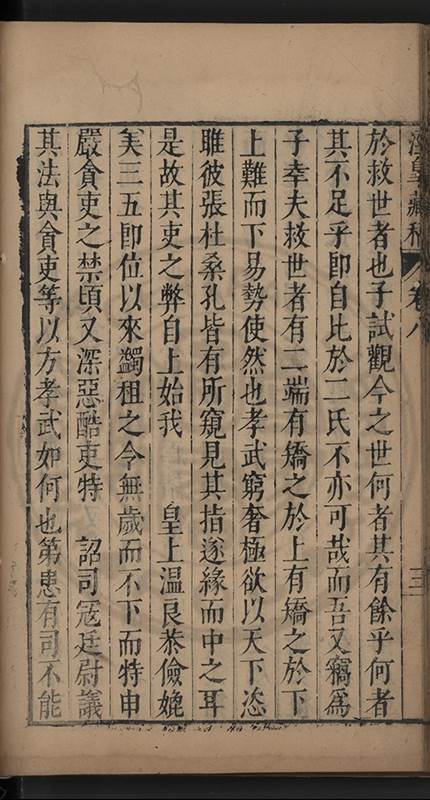 於救世者也子試觀今之世何者其有餘乎何者
其不足乎即自比於二氏不亦可哉而吾又竊爲
子幸夫救世者有二端有矯之於上有矯之於下
上難而下易勢使然也孝武窮奢極欲以天下恣
雎彼張杜桑孔皆有所窺見其指遂緣而中之耳
是故其吏之弊自上始我　　皇上溫良恭儉媲
美三五即位以來蠲租之令無歲而不下而特申
嚴貪吏之禁頃又深惡酷吏特　詔司寇廷尉議
其法與貪吏等以方孝武如何也第患有司不能